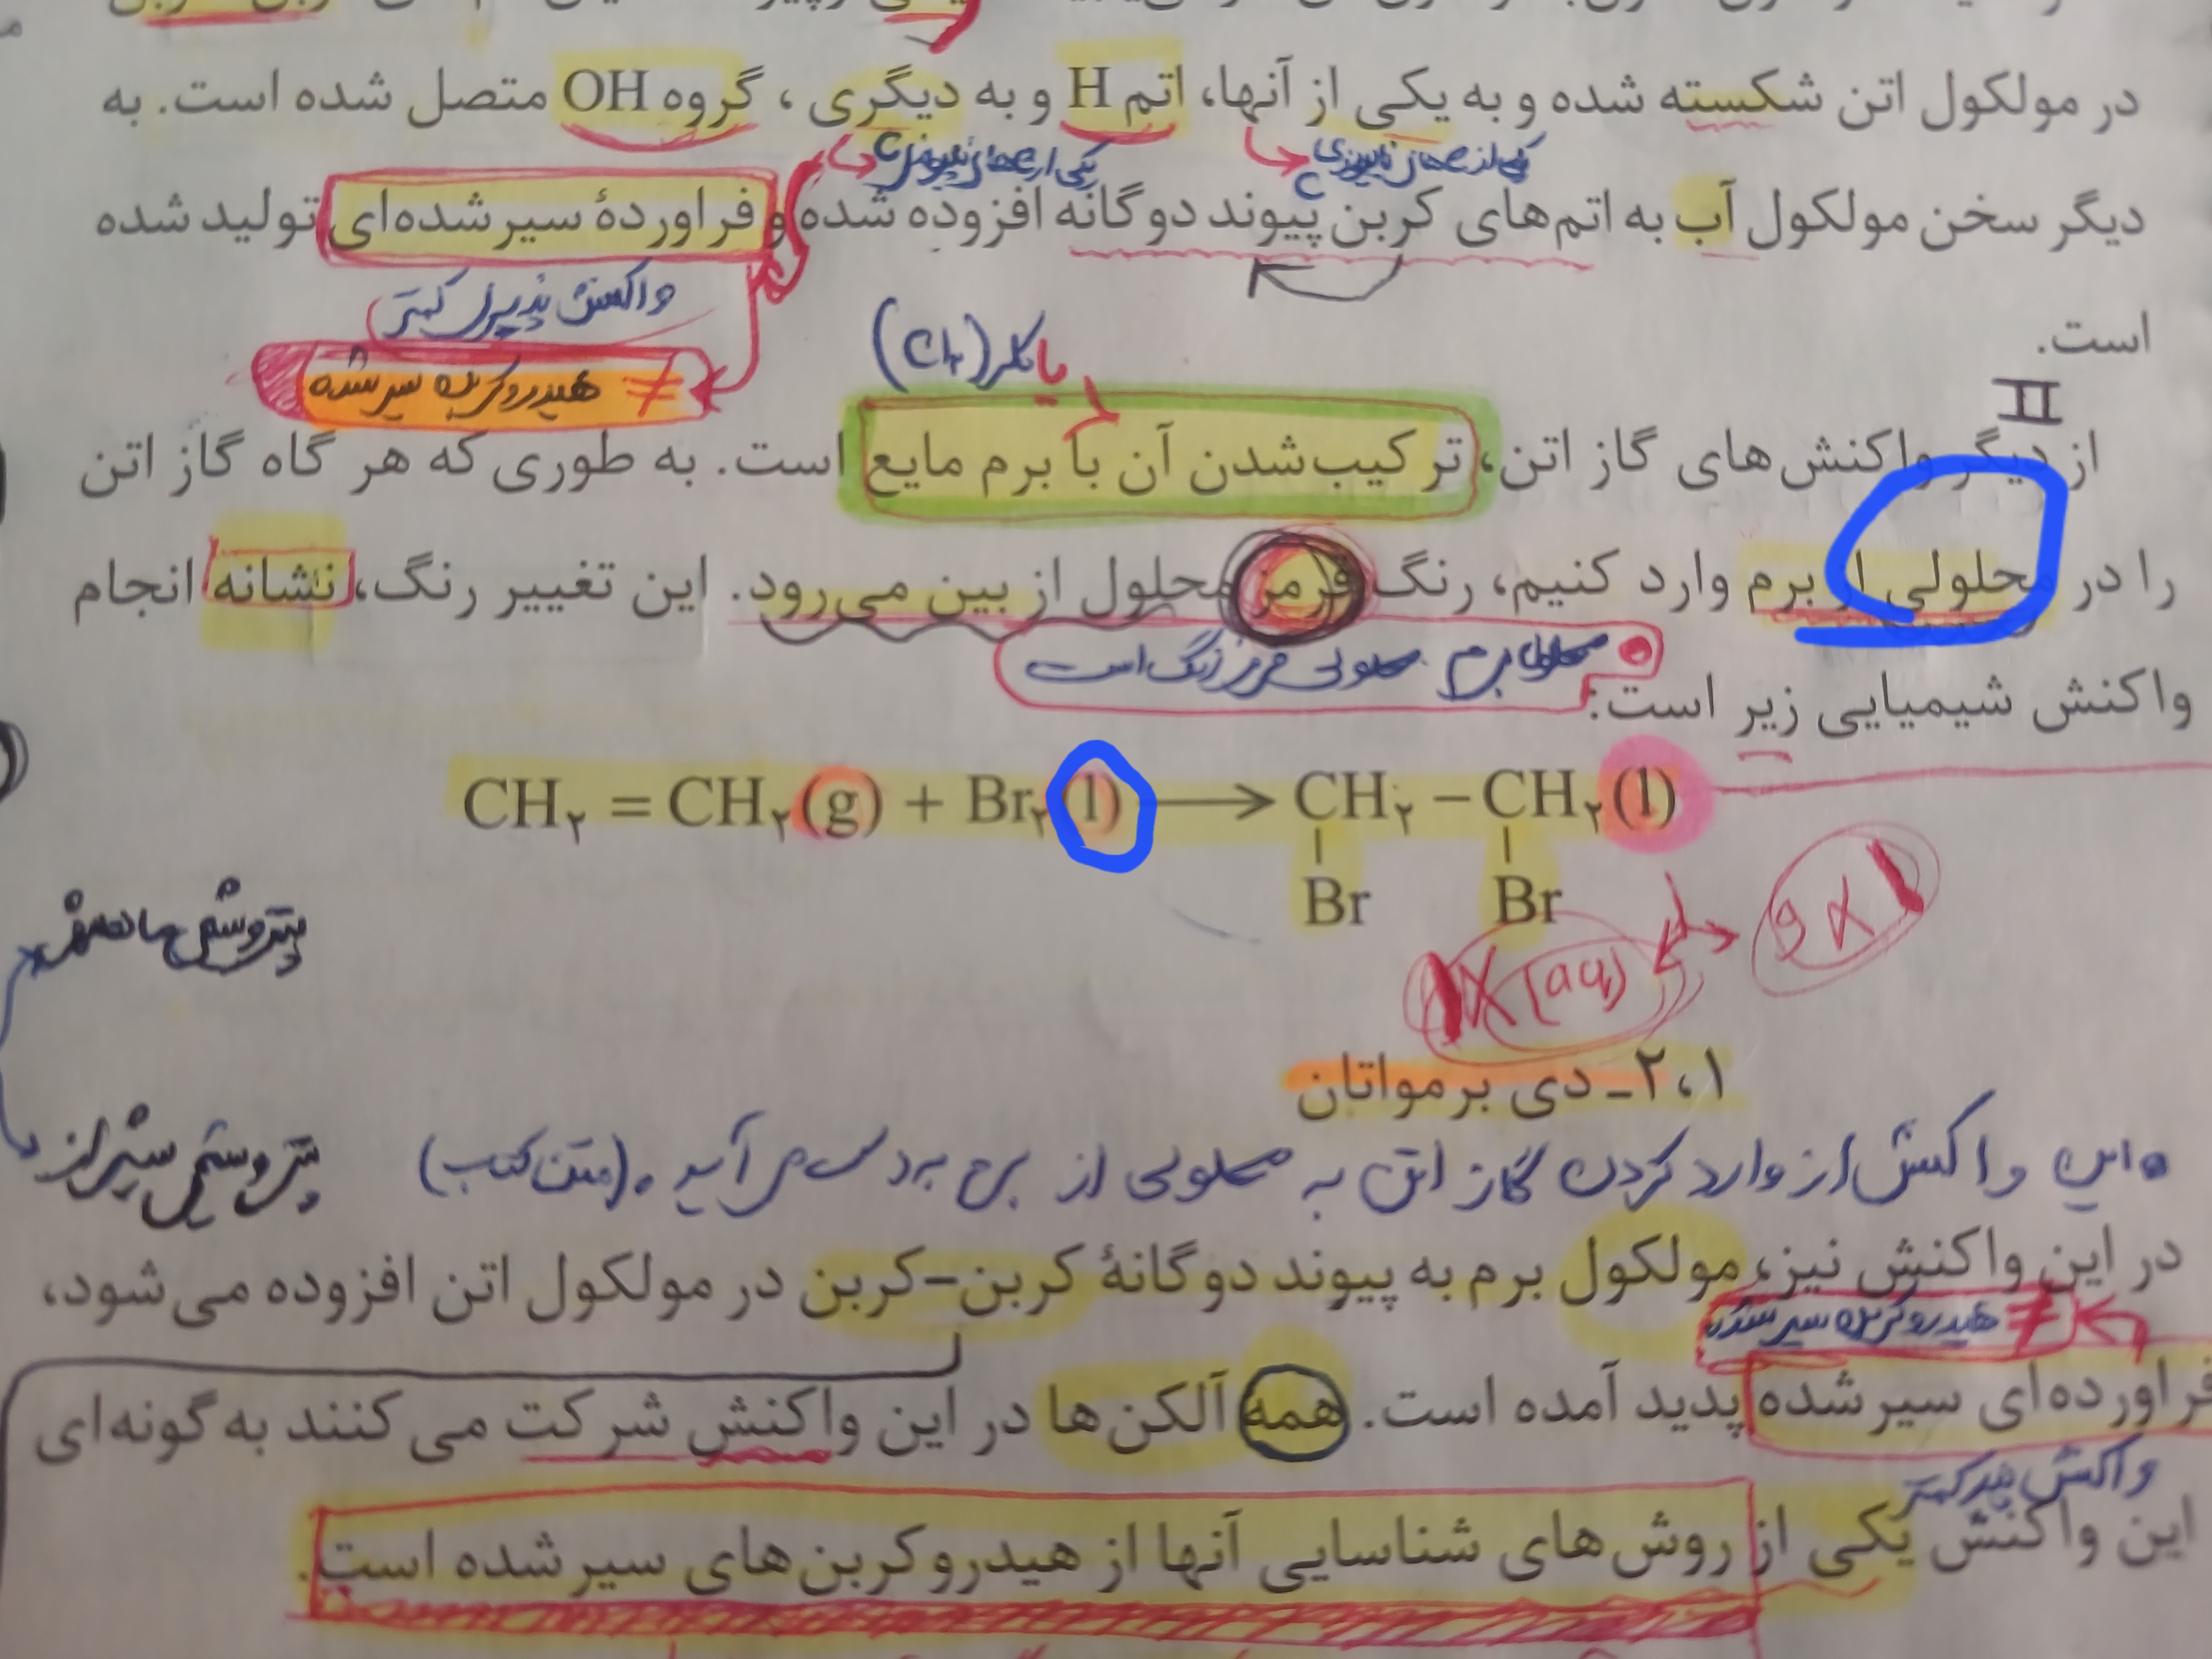 در مولکول اتن شکسته شده و به یکی از آنها، اتم H و به دیگری ، گروه OH متصل شده است. به
دیگر سخن مولکول آب به اتم‌های کربن پیوند دوگانه افزوده شده و فراوردهٔ سیرشده‌ای تولید شده
واکنش پذیری کمتر
یا کلر (Cl₂)
است.
≠ هیدروکربن سیرشده
II
از دیگر واکنش‌های گاز اتن، ترکیب‌شدن آن با برم مایع است. به طوری که هر گاه گاز اتن
را در محلولی از برم وارد کنیم، رنگ قرمز محلول از بین می‌رود. این تغییر رنگ، نشانه انجام
محلول برم محلولی قرمز رنگ است
واکنش شیمیایی زیر است:
CH₂ = CH₂(g) + Br₂(l) ⟶ CH₂ – CH₂(l)
Br Br
g X
X (aq)
۲،۱ـ دی برمواتان
• این واکنش از وارد کردن گاز اتن به محلولی از برم به دست می آید. (متن کتاب)
پتروشیمی شیراز
در این واکنش نیز، مولکول برم به پیوند دوگانهٔ کربن–کربن در مولکول اتن افزوده می‌شود،
≠ هیدروکربن سیرشده
فراورده‌ای سیرشده پدید آمده است. همه آلکن‌ها در این واکنش شرکت می‌کنند به گونه‌ای
واکنش پذیر کمتر
این واکنش یکی از روش‌های شناسایی آنها از هیدروکربن‌های سیرشده است.